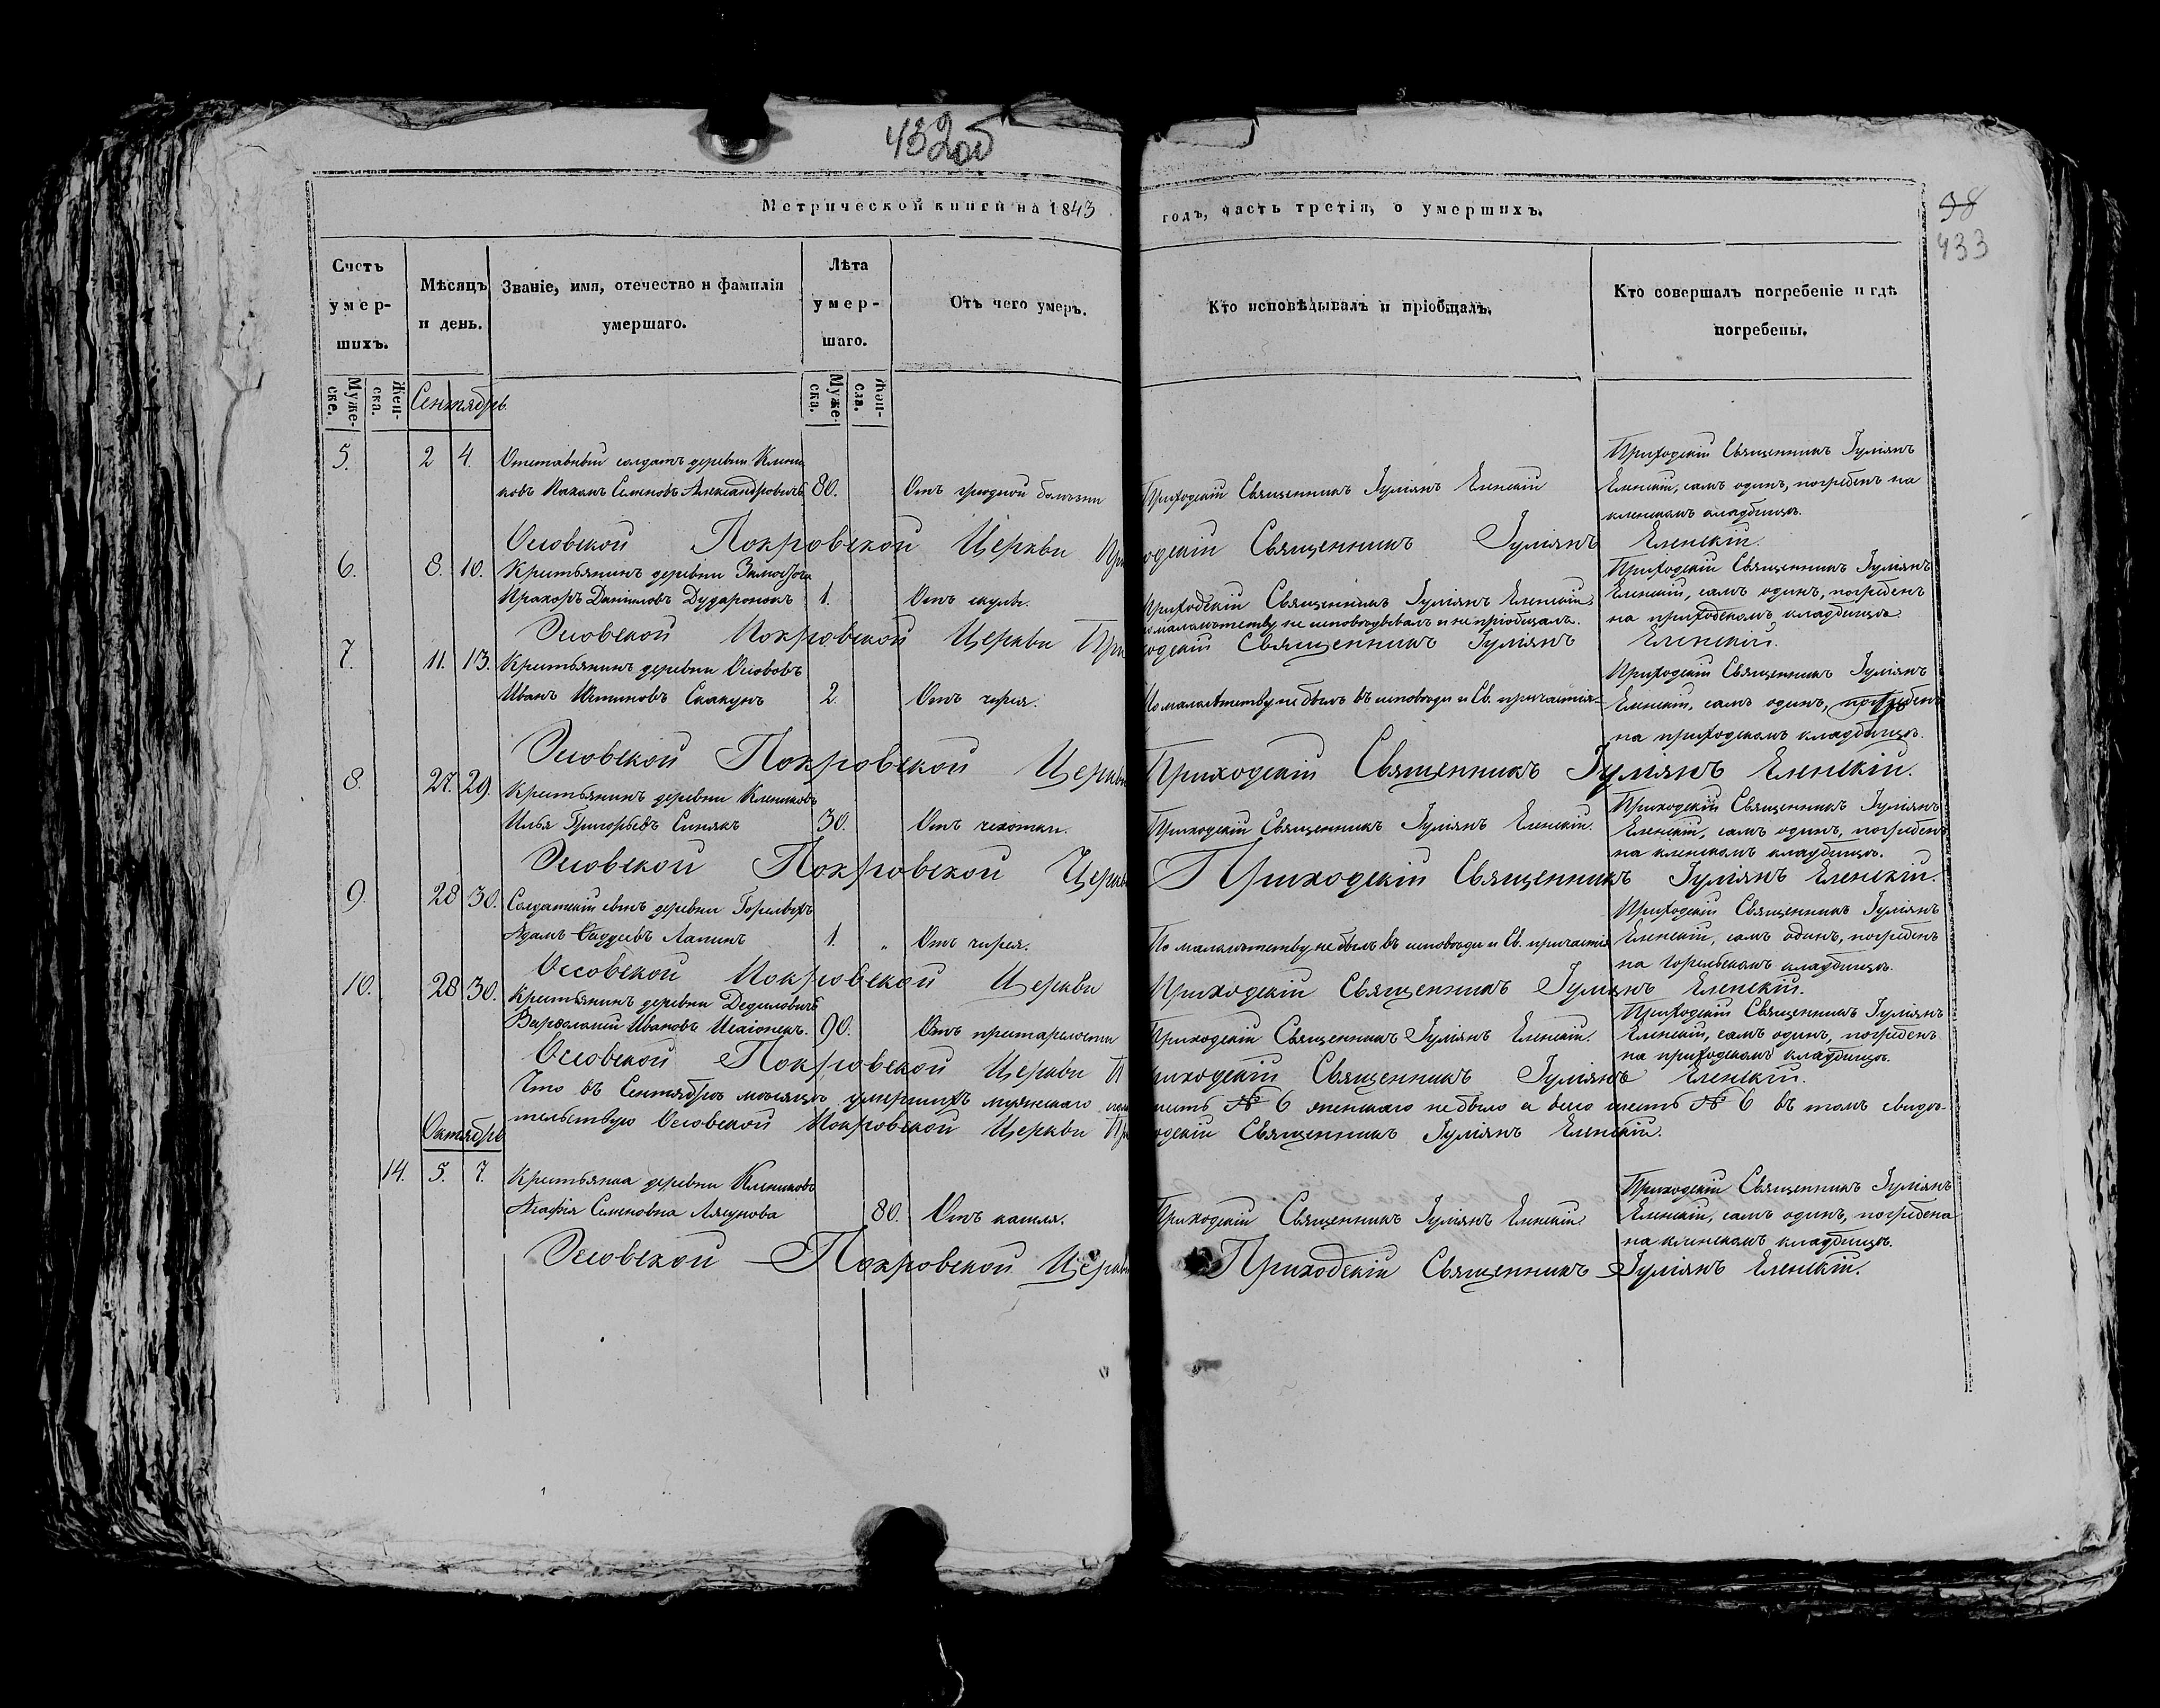 432об
Метрической книги на 1843 годъ, часть третія, о умершихъ.
38
433
Счетъ умер-шихъ.
Мѣсяцъ и день.
Званіе, имя, отечество и фамилія умершаго.
Лѣта умер-шаго.
Отъ чего умеръ.
Кто исповѣдывалъ и пріобщалъ.
Кто совершалъ погребеніе и гдѣ погребены.
Муже-ске.
Жен-ска.
Сентябрь
Муже-ска.
Жен-
5. 2 4. Отставный солдатъ деревни Клени-
ковъ Семеновъ Александровичъ 80. Отъ грудной болѣзни Приходскій Священникъ Іуліянъ Еленскій
Приходскій Священникъ Іуліянъ
Еленскій, самъ одинъ, погребенъ на
кленскомъ кладбищѣ.
Осовской Покровской Церкви Приходскій Священникъ Іуліянъ Еленскій.
6. 8. 10. Крестьянинъ деревни
Прохоръ Даніиловъ Дударонокъ 1. Отъ Приходскій Священникъ Іуліянъ Еленскій,
по малолѣтству не исповѣдывалъ и не пріобщалъ.
Приходскій Священникъ Іуліянъ
Еленскій, самъ одинъ, погребенъ
на приходскомъ кладбищѣ.
Осовской Покровской Церкви Приходскій Священникъ Іуліянъ Еленскій.
7. 11. 13. Крестьянинъ деревни Осововъ
Иванъ Скакунъ 2. Отъ чирея. По малолѣтству не былъ въ исповѣди и Св. причастія
Приходскій Священникъ Іуліянъ
Еленскій, самъ одинъ, погребенъ
на приходскомъ кладбищѣ.
Осовской Покровской Церкви Приходскій Священникъ Іуліянъ Еленскій.
8. 27. 29. Крестьянинъ деревни Клениковъ
Илья Григорьевъ Синякъ 30. Отъ чахотки. Приходскій Священникъ Іуліянъ Еленскій.
Приходскій Священникъ Іуліянъ
Еленскій, самъ одинъ, погребенъ
на кленскомъ кладбищѣ.
Осовской Покровской Церкви Приходскій Священникъ Іуліянъ Еленскій.
9. 28 30. Солдатскій сынъ деревни Горелыхъ
Адамъ Фаддеевъ Лапинъ 1. „ Отъ чирея. По малолѣтству не былъ въ исповѣди и Св. причастія
Приходскій Священникъ Іуліянъ
Еленскій, самъ одинъ, погребенъ
на горельскомъ кладбищѣ.
Оссовской Покровской Церкви Приходскій Священникъ Іуліянъ Еленскій.
10. 28 30. Крестьянинъ деревни Дедиловичъ
Варфоломей Ивановъ 90. Отъ престарелости Приходскій Священникъ Іуліянъ Еленскій.
Приходскій Священникъ Іуліянъ
Еленскій, самъ одинъ, погребенъ
на приходскомъ кладбищѣ.
Оссовской Покровской Церкви Приходскій Священникъ Іуліянъ Еленскій.
Что въ Сентябрѣ мѣсяцѣ умершихъ мужескаго пола шесть № 6 женскаго не было а всего шесть № 6 въ томъ свидѣ-
тельствую Осовской Покровской Церкви Приходскій Священникъ Іуліянъ Еленскій.
Октябрь
14. 5. 7. Крестьянка деревни Клениковъ
Агафія Семеновна 80. Отъ кашля. Приходскій Священникъ Іуліянъ Еленскій.
Приходскій Священникъ Іуліянъ
Еленскій, самъ одинъ, погребена
на кленскомъ кладбищѣ.
Осовской Покровской Церкви Приходскій Священникъ Іуліянъ Еленскій.